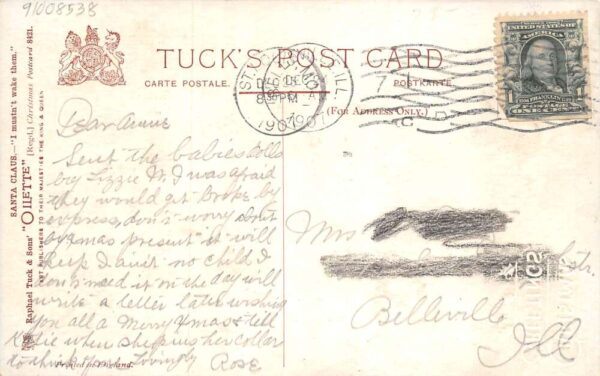 91008538
TUCK'S POST CARD
CARTE POSTALE.
POSTKARTE.
(FOR ADDRESS ONLY.)
ST. LOUIS
830 PM
1907
Dear Annie
Sent the babies dolls
by Lizzie W. I was afraid
they would get broke by
express, don't worry about
Xmas present it will
keep I ain't no child I
don't need it on the day will
write a letter later wishing
you all a Merry Xmas & tell
when shipping her collar
to think of me. Lovingly
Rose
Mrs
Str.
Belleville
Ill
SANTA CLAUS.—"I mustn't wake them."
Raphael Tuck & Sons' "OILETTE" [Regd.] Christmas Postcard 8421.
ART PUBLISHERS TO THEIR MAJESTIES THE KING & QUEEN
Printed in Holland.